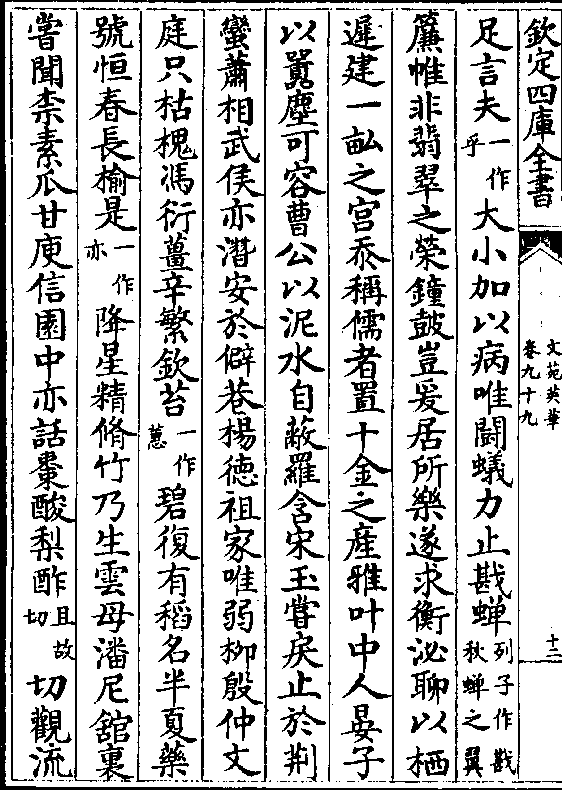 欽定四庫全書
文苑英華
卷九十九
十二
足言夫一作乎大小加以病唯鬭蟻力止戡蟬列子作戡秋蟬之翼
簾帷非翡翠之榮鐘鼓豈爰居所樂遂求衡泌聊以栖
遲建一畝之宮忝稱儒者置十金之產雅叶中人晏子
以囂塵可容曹公以泥水自蔽羅含宋玉嘗戾止於荆
蠻蕭相武侯亦潛安於僻巷楊德祖家唯弱柳殷仲文
庭只枯槐馮衍薑辛繁欽苔一作蔥碧復有稻名半夏藥
號恒春長榆是一作亦降星精脩竹乃生雲母潘尼舘裏
嘗聞柰素瓜甘庾信園中亦話棗酸梨酢且故切切觀流